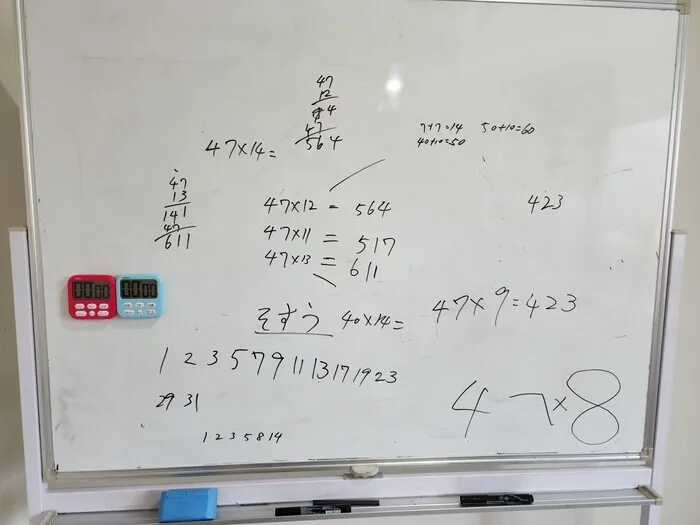 47
12
94
47
564
7+7=14 50+10=60
40+10=50
47×14=
47
13
141
47
611
47×12 = 564
47×11 = 517
47×13 = 611
423
00:00 00:00
そすう 40×14=
47×9=423
1 2 3 5 7 9 11 13 17 19 23
29 31
47×8
1 2 3 5 8 14